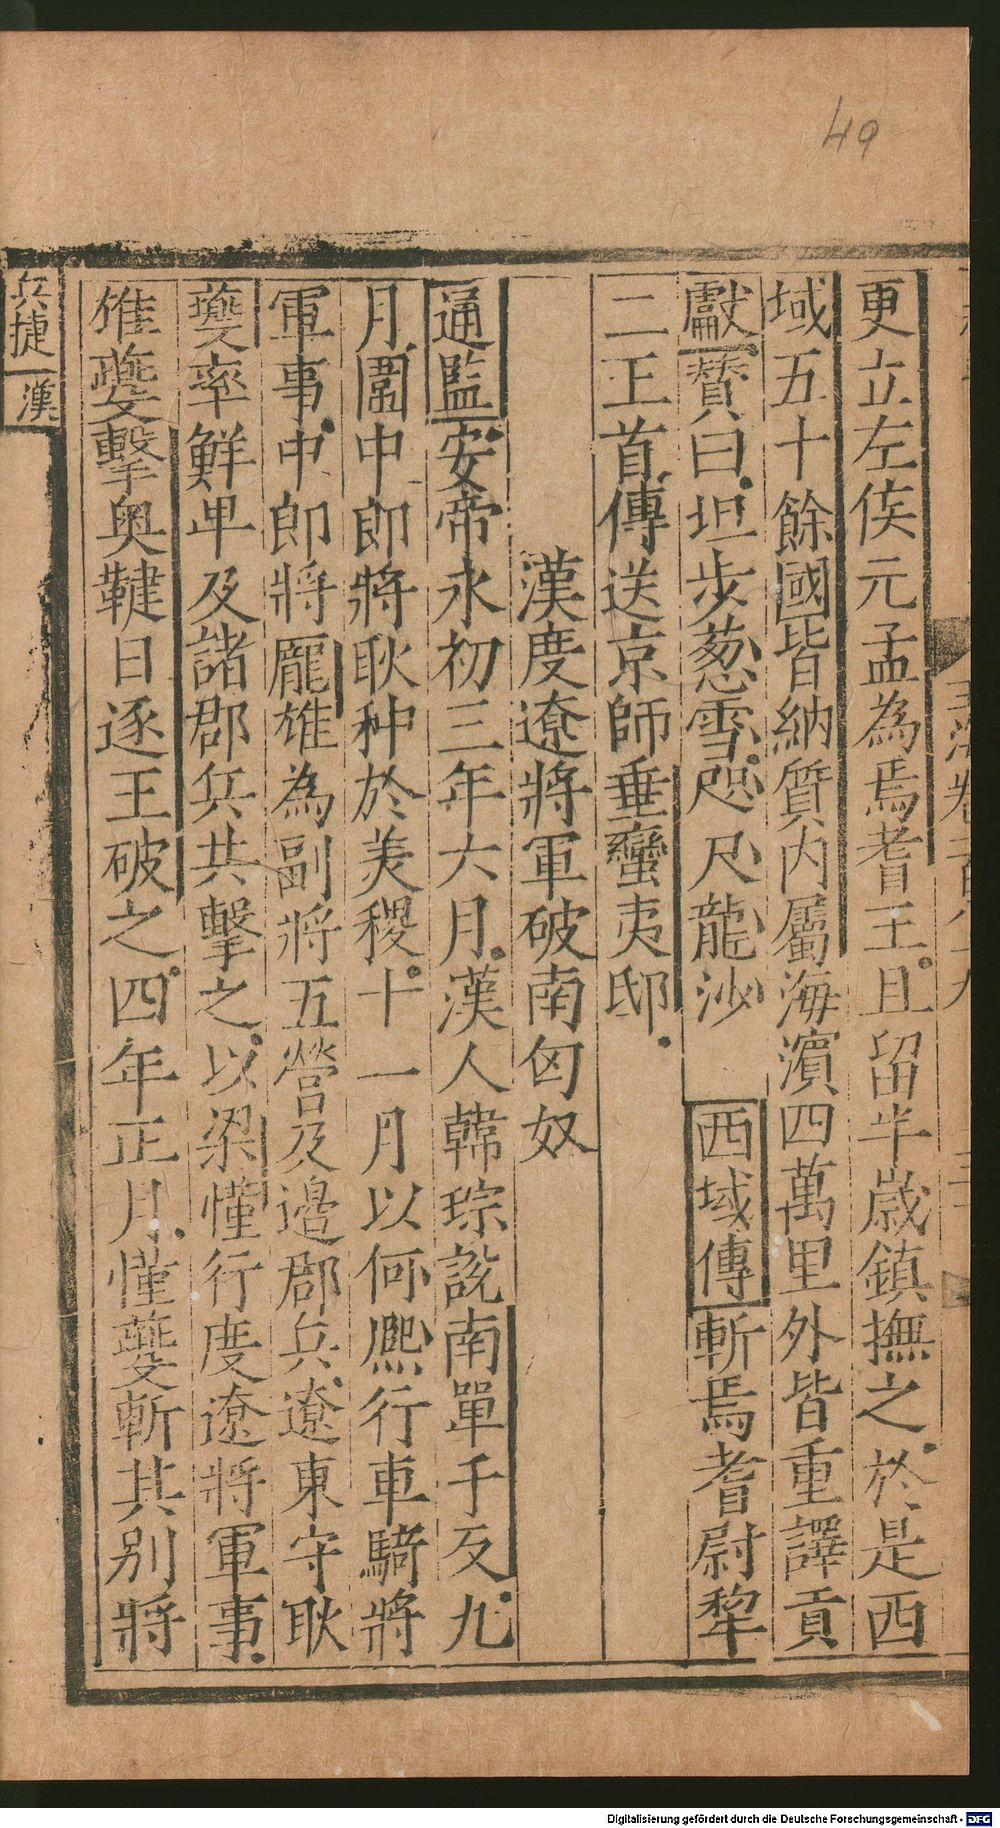 49
更立左侯元孟為焉耆王且留半歲鎮撫之於是西
域五十餘國皆納質内屬海濱四萬里外皆重譯貢
獻贊曰坦步葱雪咫尺龍沙 西域傳斬焉耆尉犂
二王首傳送京師垂蠻夷邸
漢度遼將軍破南匈奴
通監安帝永初三年六月漢人韓琮說南單于反九
月圍中郎將耿种於美稷十一月以何熈行車騎將
軍事中郎將龐雄為副將五營及邊郡兵遼東守耿
夔率鮮卑及諸郡兵共擊之以梁慬行度遼將軍事
雄夔擊奥鞬日逐王破之四年正月慬夔斬其别將
兵捷 漢
Digitalisierung gefördert durch die Deutsche Forschungsgemeinschaft - DFG